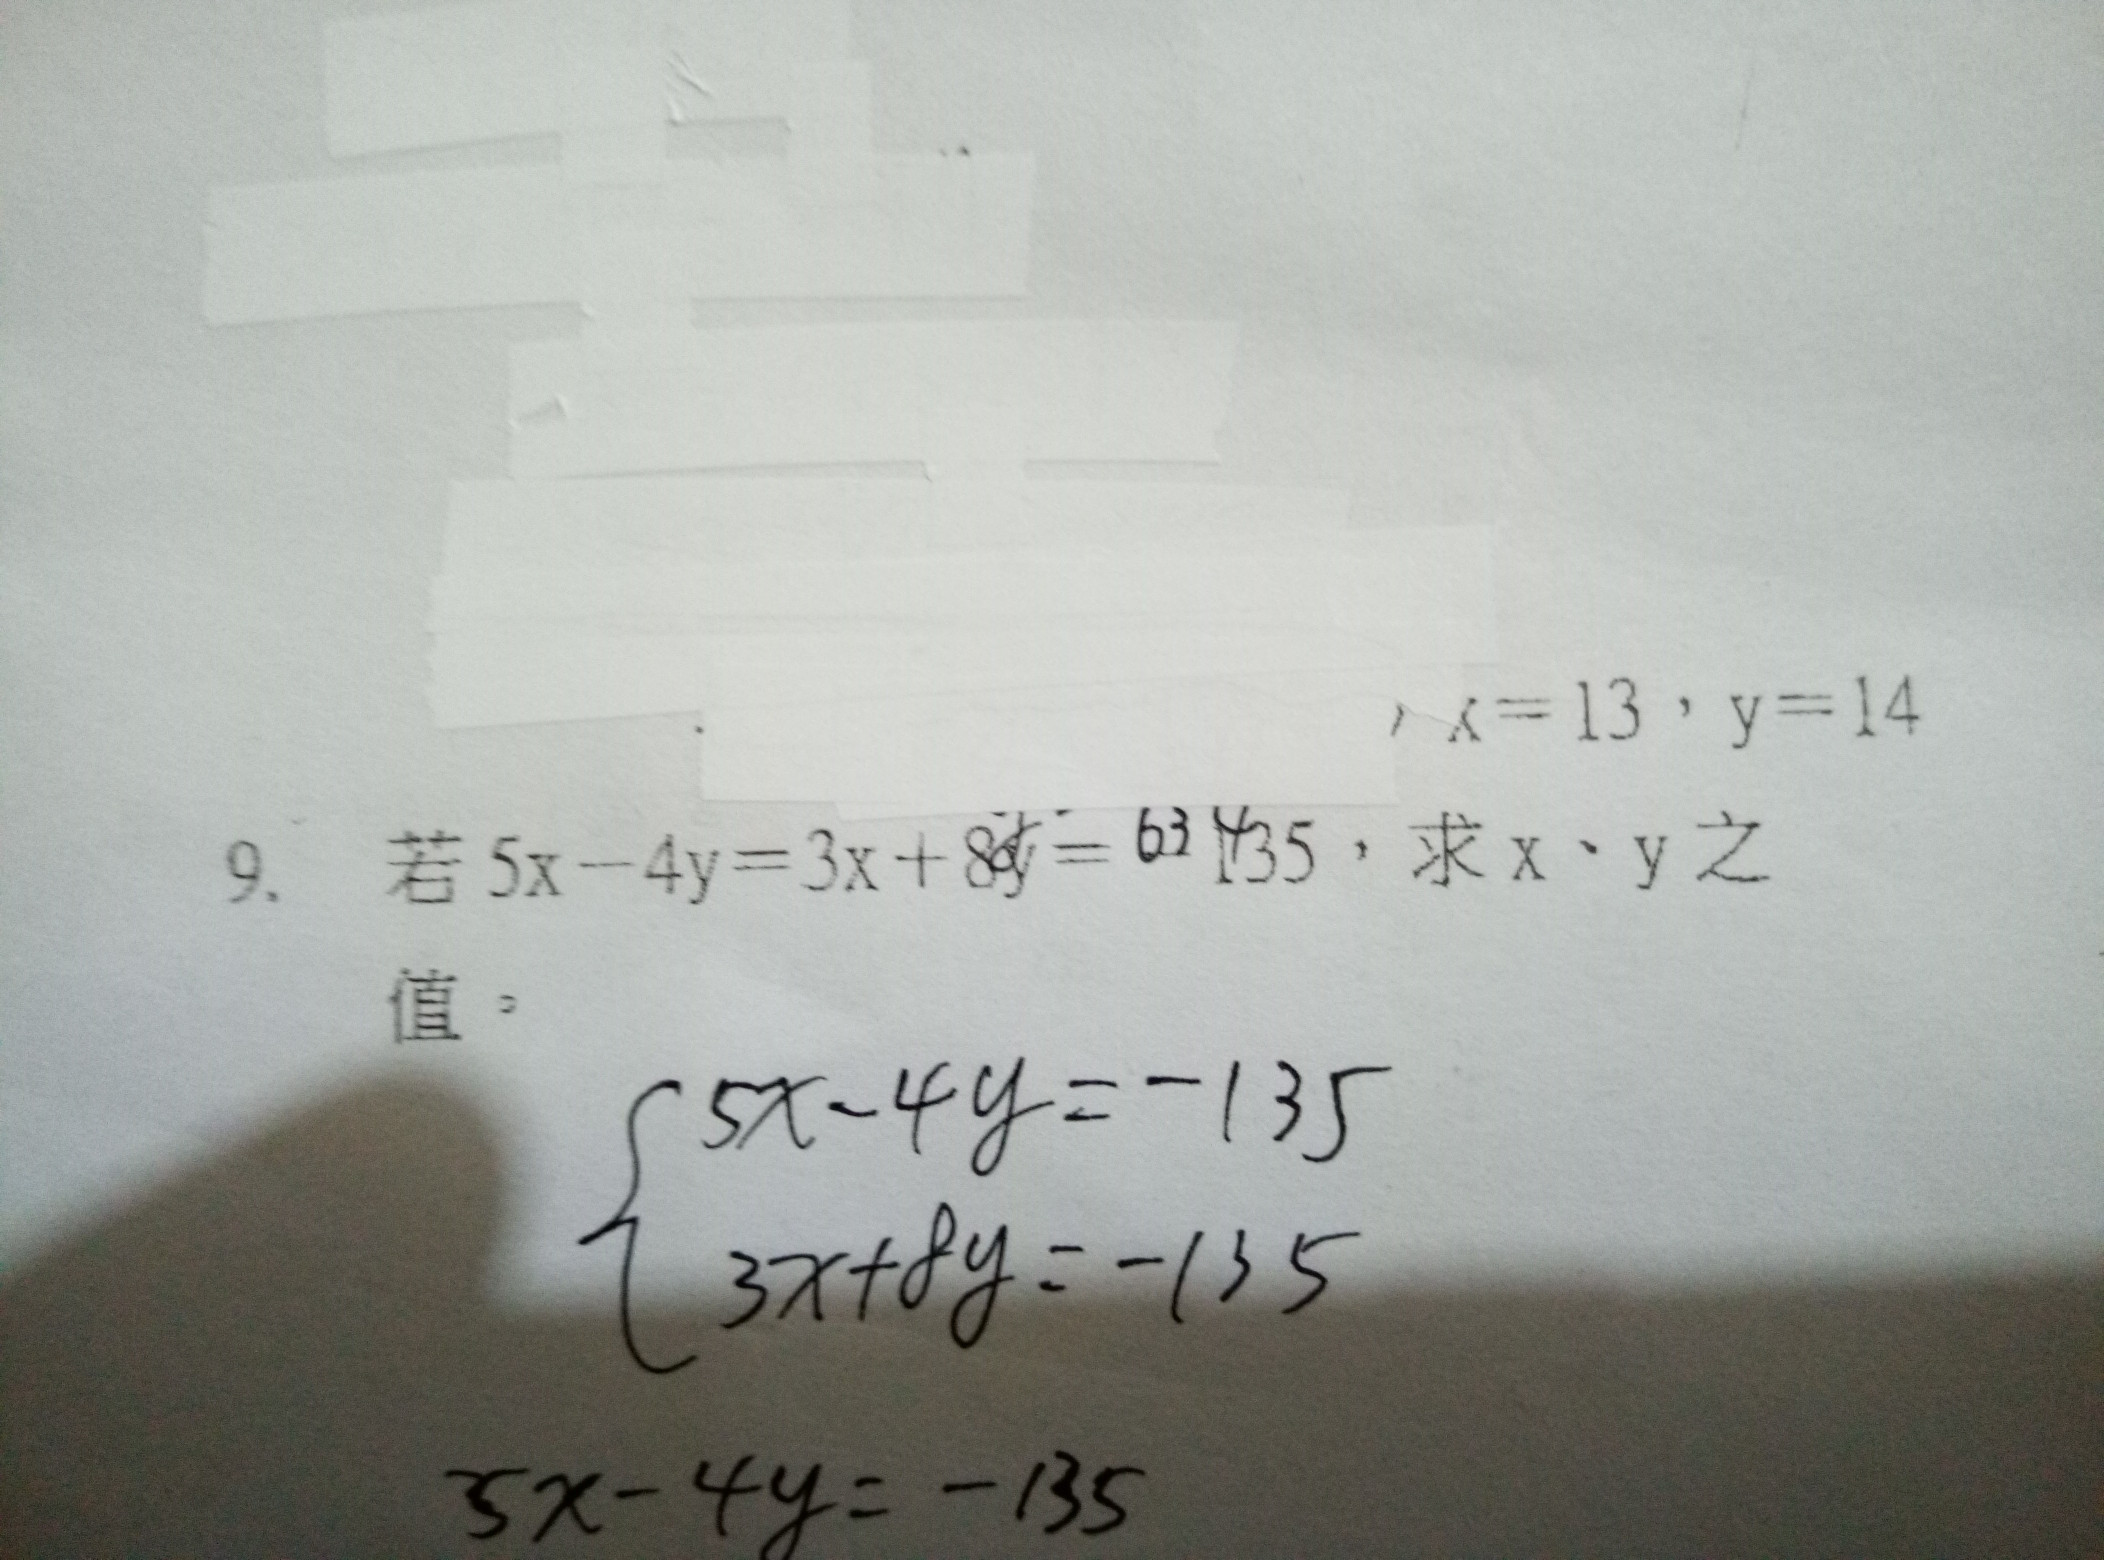 x=13,y=14
9. 若5x-4y=3x+8y= 135,求x、y之
值。
5x-4y=-135
3x+8y=-135
5x-4y=-135